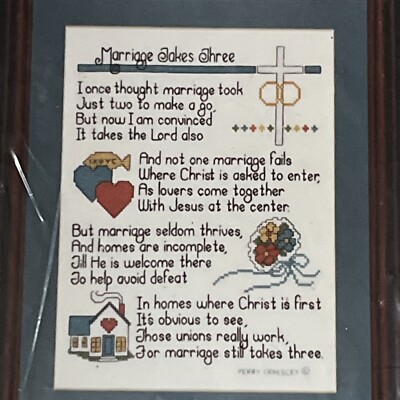 Marriage Takes Three
I once thought marriage took
Just two to make a go,
But now I am convinced
It takes the Lord also
And not one marriage fails
Where Christ is asked to enter,
As lovers come together
With Jesus at the center.
But marriage seldom thrives,
And homes are incomplete,
Till He is welcome there
To help avoid defeat
In homes where Christ is first
It's obvious to see,
Those unions really work,
For marriage still takes three.
PERRY TANKSLEY ©